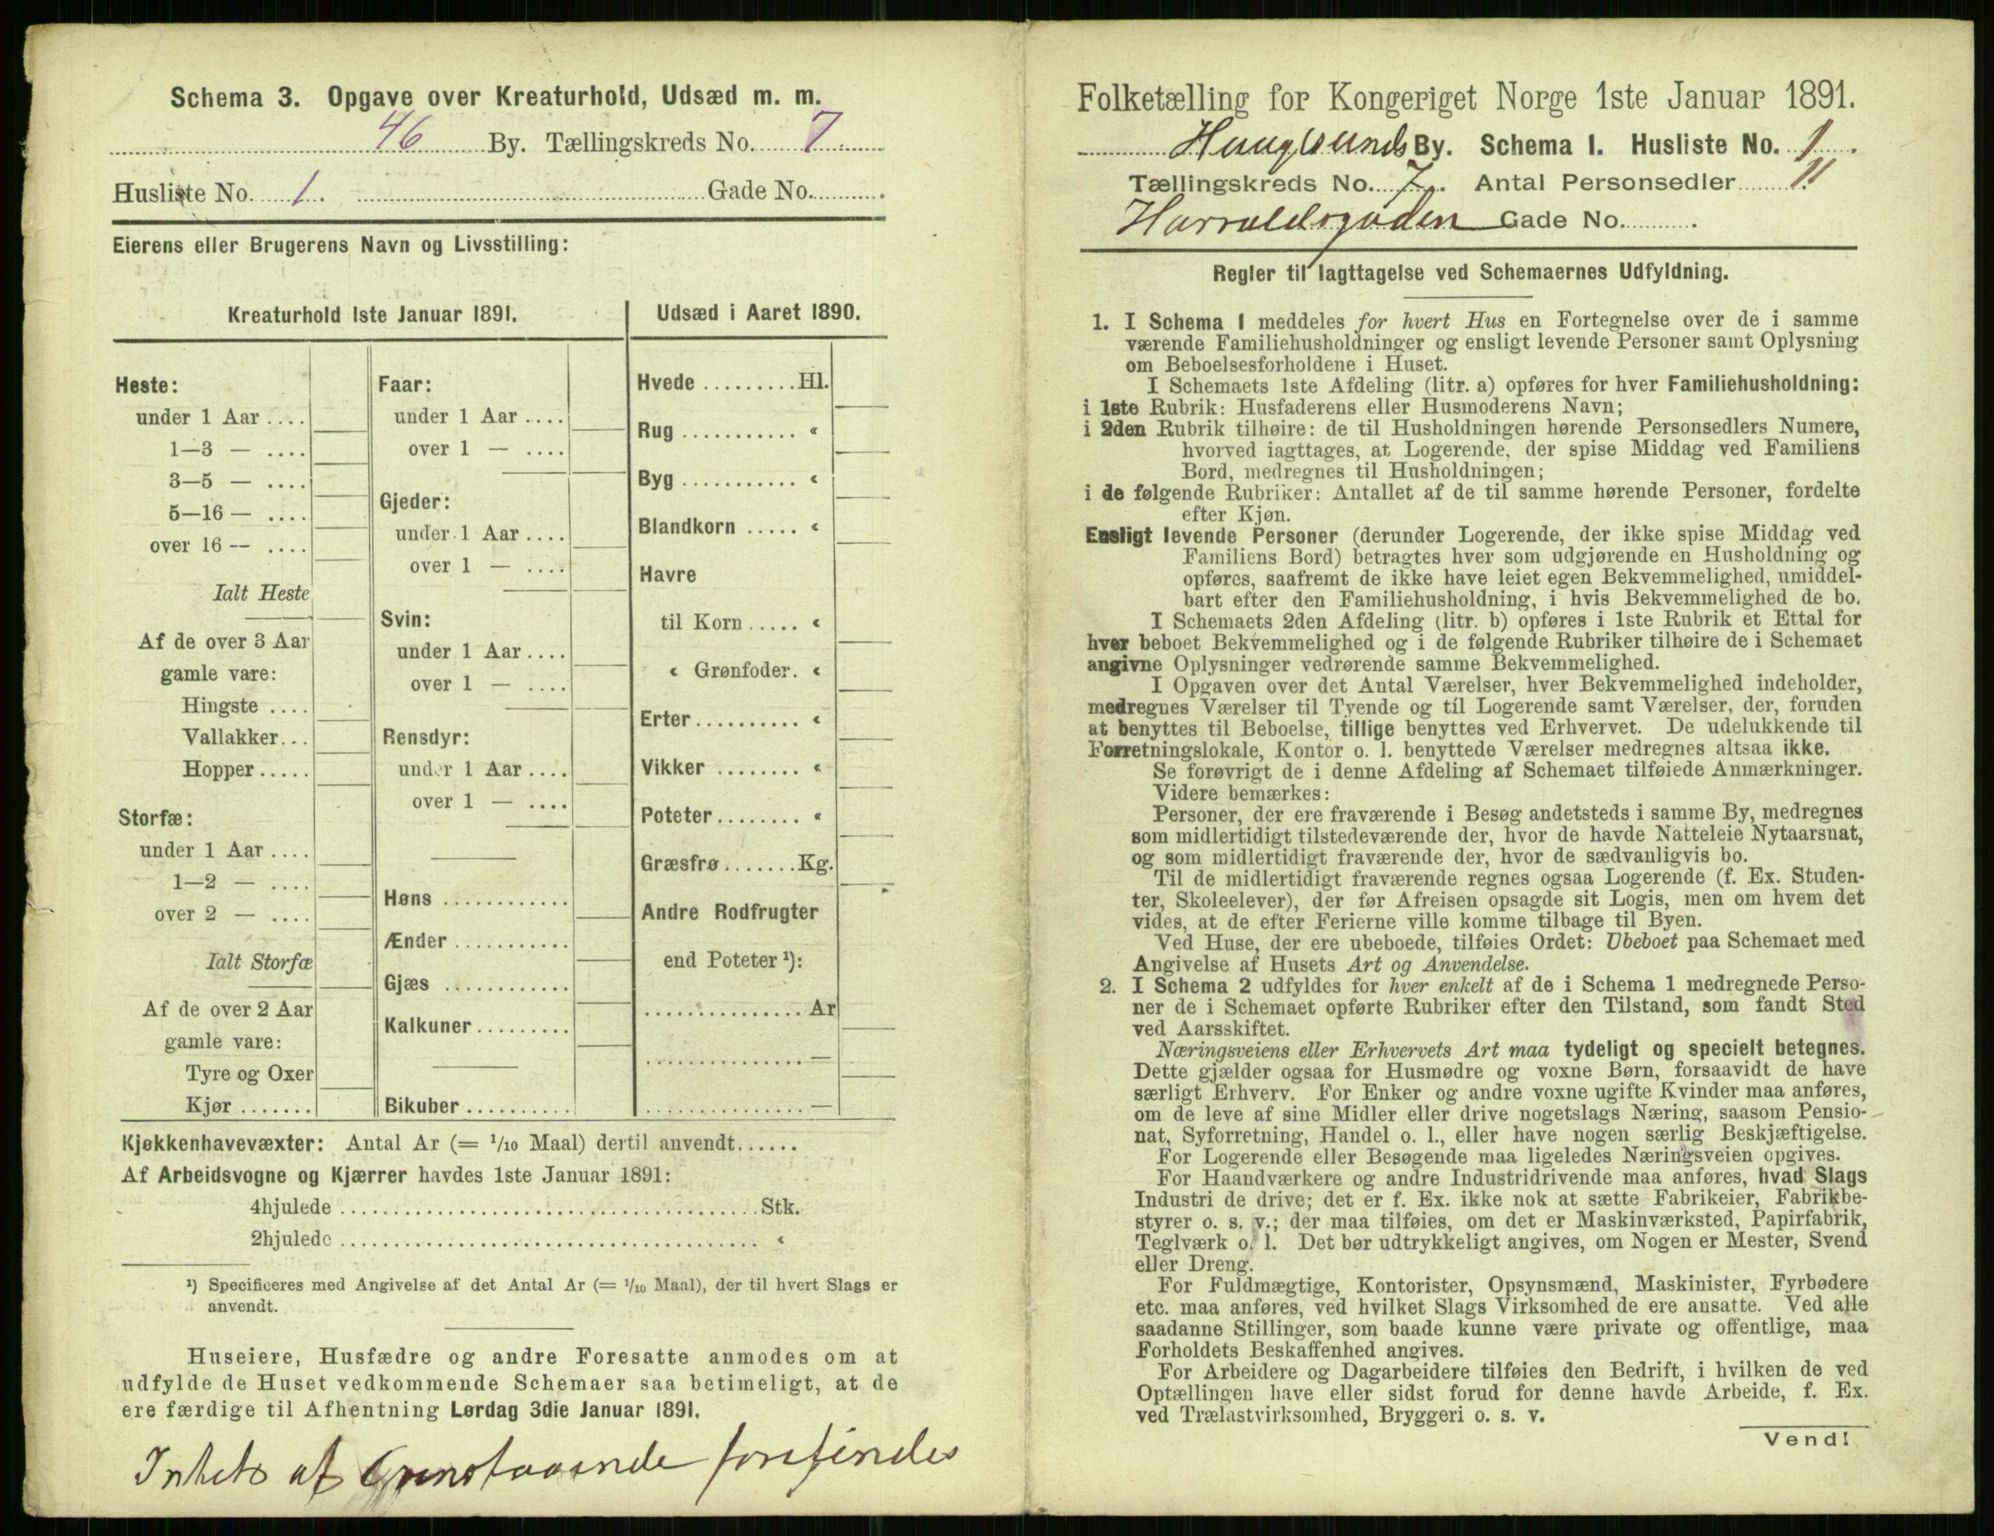 Schema 3. Opgave over Kreaturhold, Udsæd m. m.
46 By. Tællingskreds No. 7.
Husliste No. 1. Gade No.
Eierens eller Brugerens Navn og Livsstilling:
Kreaturhold 1ste Januar 1891.
Heste:
under 1 Aar ....
1—3 — ....
3—5 — ....
5—16 — ....
over 16 — ....
Ialt Heste
Af de over 3 Aar
gamle vare:
Hingste ....
Vallakker...
Hopper.....
Storfæ:
under 1 Aar ....
1—2 — ....
over 2 — ....
Ialt Storfæ
Af de over 2 Aar
gamle vare:
Tyre og Oxer
Kjør.......
Faar:
under 1 Aar ....
over 1 — ....
Gjeder:
under 1 Aar ....
over 1 — ....
Svin:
under 1 Aar ....
over 1 — ....
Rensdyr:
under 1 Aar ....
over 1 — ....
Høns ............
Ænder ...........
Gjæs ............
Kalkuner.........
Bikuber ..........
Udsæd i Aaret 1890.
Hvede .........Hl.
Rug ........... «
Byg ........... «
Blandkorn ..... «
Havre
til Korn ..... «
« Grønfoder. «
Erter.......... «
Vikker ........ «
Poteter........ «
Græsfrø.......Kg.
Andre Rodfrugter
end Poteter ¹):
...............Ar
...............—
...............—
Kjøkkenhavevæxter: Antal Ar (= 1/10 Maal) dertil anvendt......
Af Arbeidsvogne og Kjærrer havdes 1ste Januar 1891:
4hjulede ........................................Stk.
2hjulede ........................................ «
¹) Specificeres med Angivelse af det Antal Ar (= 1/10 Maal), der til hvert Slags er
anvendt.
Huseiere, Husfædre og andre Foresatte anmodes om at
udfylde de Huset vedkommende Schemaer saa betimeligt, at de
ere færdige til Afhentning Lørdag 3die Januar 1891.
Intet af forefindes
Folketælling for Kongeriget Norge 1ste Januar 1891.
Haugesunds By. Schema I. Husliste No. 1.
Tællingskreds No. 7. Antal Personsedler 11
Harraldsgaden Gade No.
Regler til Iagttagelse ved Schemaernes Udfyldning.
1. I Schema I meddeles for hvert Hus en Fortegnelse over de i samme
værende Familiehusholdninger og ensligt levende Personer samt Oplysning
om Beboelsesforholdene i Huset.
I Schemaets 1ste Afdeling (litr. a) opføres for hver Familiehusholdning:
i 1ste Rubrik: Husfaderens eller Husmoderens Navn;
i 2den Rubrik tilhøire: de til Husholdningen hørende Personsedlers Numere,
hvorved iagttages, at Logerende, der spise Middag ved Familiens
Bord, medregnes til Husholdningen;
i de følgende Rubriker: Antallet af de til samme hørende Personer, fordelte
efter Kjøn.
Ensligt levende Personer (derunder Logerende, der ikke spise Middag ved
Familiens Bord) betragtes hver som udgjørende en Husholdning og
opføres, saafremt de ikke have leiet egen Bekvemmelighed, umiddel-
bart efter den Familiehusholdning, i hvis Bekvemmelighed de bo.
I Schemaets 2den Afdeling (litr. b) opføres i 1ste Rubrik et Ettal for
hver beboet Bekvemmelighed og i de følgende Rubriker tilhøire de i Schemaet
angivne Oplysninger vedrørende samme Bekvemmelighed.
I Opgaven over det Antal Værelser, hver Bekvemmelighed indeholder,
medregnes Værelser til Tyende og til Logerende samt Værelser, der, foruden
at benyttes til Beboelse, tillige benyttes ved Erhvervet. De udelukkende til
Forretningslokale, Kontor o. l. benyttede Værelser medregnes altsaa ikke.
Se forøvrigt de i denne Afdeling af Schemaet tilføiede Anmærkninger.
Videre bemærkes:
Personer, der ere fraværende i Besøg andetsteds i samme By, medregnes
som midlertidigt tilstedeværende der, hvor de havde Natteleie Nytaarsnat,
og som midlertidigt fraværende der, hvor de sædvanligvis bo.
Til de midlertidigt fraværende regnes ogsaa Logerende (f. Ex. Studen-
ter, Skoleelever), der før Afreisen opsagde sit Logis, men om hvem det
vides, at de efter Ferierne ville komme tilbage til Byen.
Ved Huse, der ere ubeboede, tilføies Ordet: Ubeboet paa Schemaet med
Angivelse af Husets Art og Anvendelse.
2. I Schema 2 udfyldes for hver enkelt af de i Schema 1 medregnede Perso-
ner de i Schemaet opførte Rubriker efter den Tilstand, som fandt Sted
ved Aarsskiftet.
Næringsveiens eller Erhvervets Art maa tydeligt og specielt betegnes.
Dette gjælder ogsaa for Husmødre og voxne Børn, forsaavidt de have
særligt Erhverv. For Enker og andre voxne ugifte Kvinder maa anføres,
om de leve af sine Midler eller drive nogetslags Næring, saasom Pensio-
nat, Syforretning, Handel o. l., eller have nogen særlig Beskjæftigelse.
For Logerende eller Besøgende maa ligeledes Næringsveien opgives.
For Haandværkere og andre Industridrivende maa anføres, hvad Slags
Industri de drive; det er f. Ex. ikke nok at sætte Fabrikeier, Fabrikbe-
styrer o. s. v.; der maa tilføies, om det er Maskinværksted, Papirfabrik,
Teglværk o. l. Det bør udtrykkeligt angives, om Nogen er Mester, Svend
eller Dreng.
For Fuldmægtige, Kontorister, Opsynsmænd, Maskinister, Fyrbødere
etc. maa anføres, ved hvilket Slags Virksomhed de ere ansatte. Ved alle
saadanne Stillinger, som baade kunne være private og offentlige, maa
Forholdets Beskaffenhed angives.
For Arbeidere og Dagarbeidere tilføies den Bedrift, i hvilken de ved
Optællingen have eller sidst forud for denne havde Arbeide, f. Ex.
ved Trælastvirksomhed, Bryggeri o. s. v.
Vend!